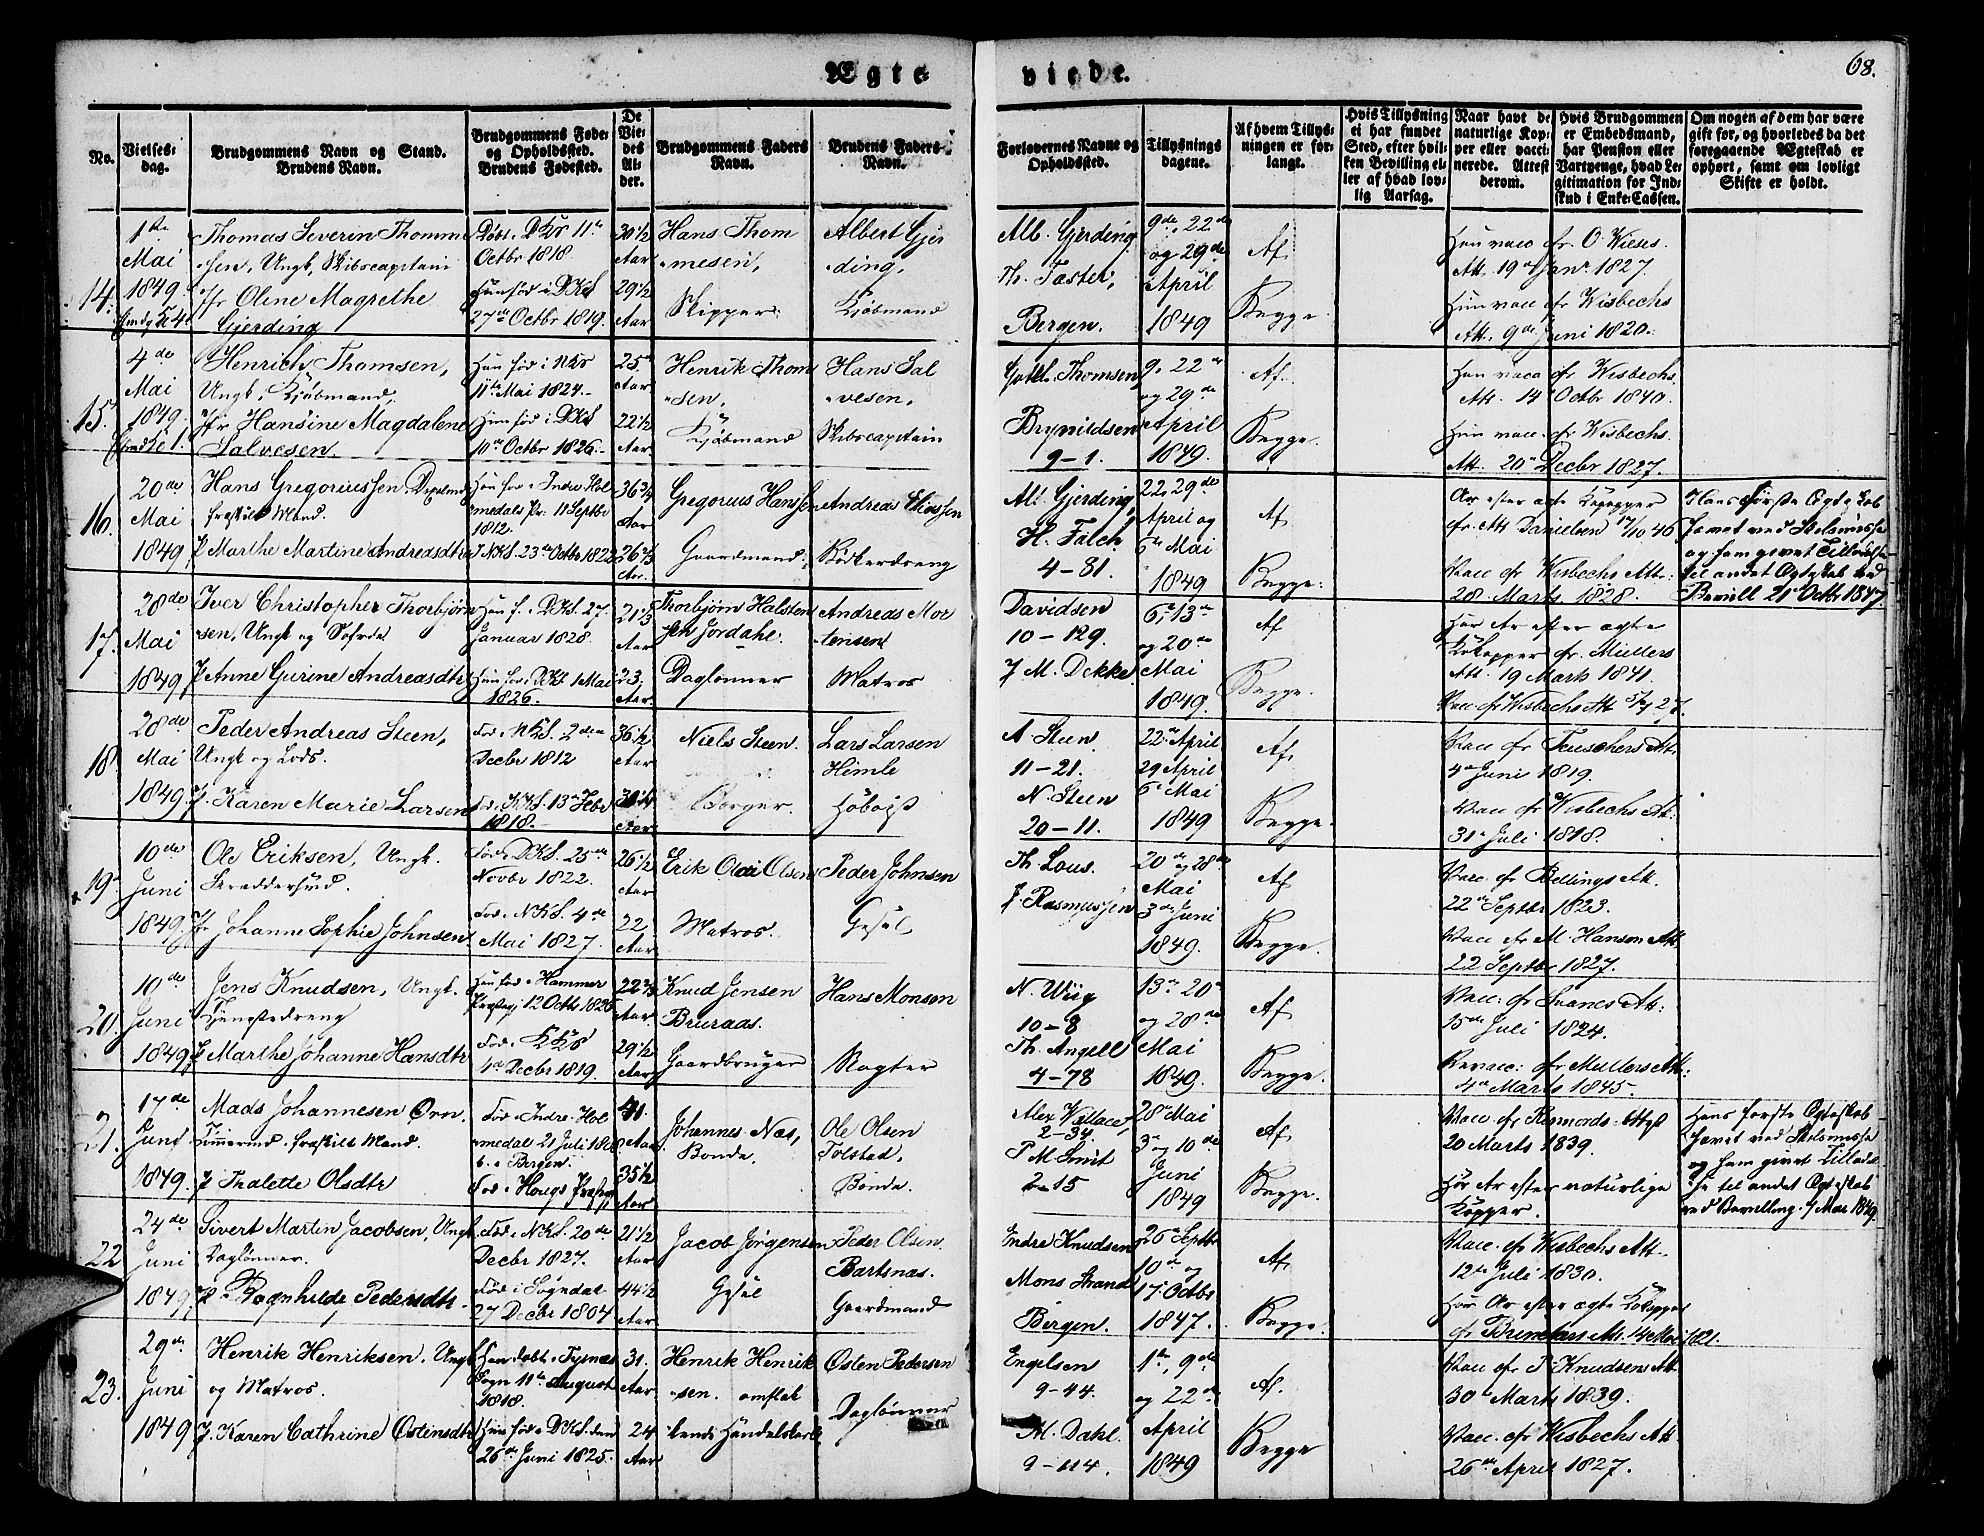 Ægte
viede.
68.
No.
Vielses-
dag.
Brudgommens Navn og Stand.
Brudens Navn.
Brudgommens Føde-
og Opholdssted.
Brudens Fødested.
De
Vie-
des
Al-
der.
Brudgommens Faders
Navn.
Brudens Faders
Navn.
Forlovernes Navne og
Opholdssted.
Tillysnings
dagene.
Af hvem Tillys-
ningen er for-
langt.
Hvis Tillysning
ei har fundet
Sted, efter hvil-
ken Bevilling el-
ler af hvad lov-
lig Aarsag.
Naar havt de
naturlige Kop-
per eller vacci-
nerede. Attest
derom.
Hvis Brudgommen
er Embedsmand,
har Pension eller
Vartpenge, hvad Le-
gitimation for Ind-
skud i Enke-Cassen.
Om nogen af dem har være
gift før, og hvorledes da det
foregaaende Ægteskab er
ophørt, samt om lovligt
Skifte er holdt.
14.
1ste
Mai
1849.
Thomas Severin Thomme
-sen, Ungk, Skibscapitain
Jfr Oline Magrethe
Gjerding
Døbt i DKs 11te
Octbr 1818.
Hun fød i DKs
27de Octbr 1819.
30 1/2
Aar
29 1/2
Aar
Hans Thom
-mesen,
Skipper
Albert Gjer
-ding,
Kjøbmand
Alb. Gjerding
Th. Taster,
Bergen.
9de, 22de
og 29de
April
1849
Af
Begge.
Han vacc efr O. Wieses
Att. 19de Janr. 1827.
Hun vacc efr Wisbechs
Att. 9de Juni 1820.
15.
4de
Mai
1849.
Henrich Thomsen,
Ungk, Kjøbmand,
Jfr Hansine Magdalene
Salvesen
Han fød i NKs
11te Mai 1824.
Hun fød i DKs
10de Octbr 1826.
25
Aar
22 1/2
Aar
Henrik Thom
-sen,
Kjøbmand
Hans Sal
-vesen,
Skibscapitain
Gottl. Thomsen
Brynildsen
9-1.
9, 22de
og 29de
April
1849.
Af
Begge.
Han vacc efr Wisbechs
Att. 14 Octbr 1840.
Hun vacc. efr Wisbechs
Att. 20de Decbr 1827.
16.
20de
Mai
1849
Hans Gregoriussen
fraskilt Mand.
P Marthe Martine Andreasdtr
Han fød i Indre Hol
-medals Pr. 11 Septbr
1812.
i NKS. 23de Octbr 1822
36 3/4
Aar
26 2/3
Aar.
Gregorius Hanssen
Gaardmand.
Andreas Eliassen
Bødkerdreng
Al. Gjerding,
H. Falch
4-81.
22, 29de
April og
6te Mai
1849
Af
Begge.
Ar efter ægte Kopper
efr. Att Danielsen 17/10 46
Vacc efr Wisbechs Att.
28. Marts 1828.
Hans første Ægteskab
hævet ved Skilsmisse
og ham givet Tilladelse
til andet Ægteskab ved
Bevill 21 Octbr 1847.
17.
28de
Mai
1849
Iver Christopher Thorbjørn
-sen, Ungk og
P Anne Gurine Andreasdtr
Han f. i DKS. 27
Januar 1828.
Hun fød i DKs 1 Mai
1826.
21 1/3
Aar
23.
Aar
Thorbjørn Halsten
-sen Jordahl.
Daglønner
Andreas Mor
-tensen
Matros
Davidsen
10-129.
J M. Dekke
6te, 13de
og 20de
Mai
1849.
Af
Begge.
Har Ar efter ægte
Kokopper efr. Müllers
Att. 19 Marts 1841.
Vacc efr Wisbechs Att 5/7 27.
18.
28de
Mai
1849
Peder Andreas Steen,
Ungk og Lods.
P. Karen Marie Larsen
Fød i NKS. 2den
Decbr 1812
Fød i KKS. 13de Febr
1818.
36 1/2
Aar
Aar
Niels Steen.
Borger.
Lars Larsen
Himle
Høboist
A Steen
11-21.
N. Steen
20-11.
22de April
29 April
6te Mai
1849
Af
Begge.
Vacc efr Teuschers Att.
4de Juni 1819.
Vacc efr Wisbechs At.
31te Juli 1818.
19.
10de
Juni
1849.
Ole Eriksen, Ungk.
Skreddersvend.
Jfr Johanne Sophie Johnsen
Fød i DKS. 25de
Novbr 1822.
Fød i NKS. 4de
Mai 1827.
26 1/2
Aar
22
Aar
Erik Olai Olsen
Matros.
Peder Johnsen
Gesel
Th. Lous.
J. Rasmussen
20de og 28de
Mai
3de Juni
1849.
Af
Begge.
Vacc. efr Bellings Att.
22de Septbr 1823.
Vacc efr M. Hanson Att
22 Septbr 1827.
20.
10de
Juni
1849
Jens Knudsen, Ungk.
Tjenestedreng
P Marthe Johanne Hansdtr
Han fød i Hammer
Præstegj 12 Octbr 1826
Fød i KKS
4de Decbr 1819.
22 2/3
Aar.
29 1/2
Aar
Knud Jensen
Bruraas.
Gaardbruger
Hans Monsen
Vagter
N. Wiig
10-8
Th. Angell
4-78
13de 20de
og 28de
Mai
1849.
Af
Begge.
Vacc. efr Svanes Att.
15de Juli 1824.
Revacc: efr Müllers Att:
4de Marts 1845.
21.
17de
Juni
1849.
Mads Johannesen Ørn
Tømmermd. fraskilt Mand.
P Thalette Olsdtr
Fød i Indre Hol
-medal 21 Juli 1808
b. i Bergen.
Fød i Hougs Præstgj
41.
Aar
35 1/2
Aar
Johannes Næs,
Bonde.
Ole Olsen
Tolstad,
Bonde.
Alex Wallace,
2-34.
P M. Smit
2-15
28de Mai
3de og 10de
Juni
1849
Af
Begge.
Vacc efr Attest
20 Marts 1839.
Har Ar efter naturlige
Kopper.
Hans første Ægteskab
hævet ved Skilsmisse
og ham givet Tilladel
se til andet Ægteskab
ved Bevilling. 1 Mai 1849
22
24de
Juni
1849
Sivert Martin Jacobsen, Ungk
Dagløner.
P Ragnhilde Pedersdtr
Fød i NKS. 20de
Decbr 1827.
Fød i Sogndal
27 Decbr 1804
21 1/2
Aar
44 1/2
Aar
Jacob Jørgensen
Gesel
Peder Olsen
Bartsnæs.
Gaardmand
Endre Knudsen
Mons Strand
Bergen.
26de Septbr
10de og
17de Octbr
1847.
Af
Begge.
Vacc. efr Wisbechs Att.
12te Juli 1830.
Har Ar efter ægte Kokopper
efr Att. 14 Mai 1821.
23.
29de
Juni
1849
Henrik Henriksen, Ungk
og Matros.
P. Karen Cathrine Østensdtr
Han døbt i Tysnæs
Sogn 11te August
1818.
Hun fød i DKS. den
26de Juni 1825.
31.
Aar
24
Aar
Henrik Henrik
-sen. omflak
-kende Handelskarl
Østen Pedersen
Daglønner
Engelsen
9-44.
M. Dahl.
9-114.
1te, 9de
og 22de
April
1849
Af.
Begge
Vacc efr P. Knudsens Att
30te Marts 1839.
Vacc. efr Wisbechs Att
26de April 1827.